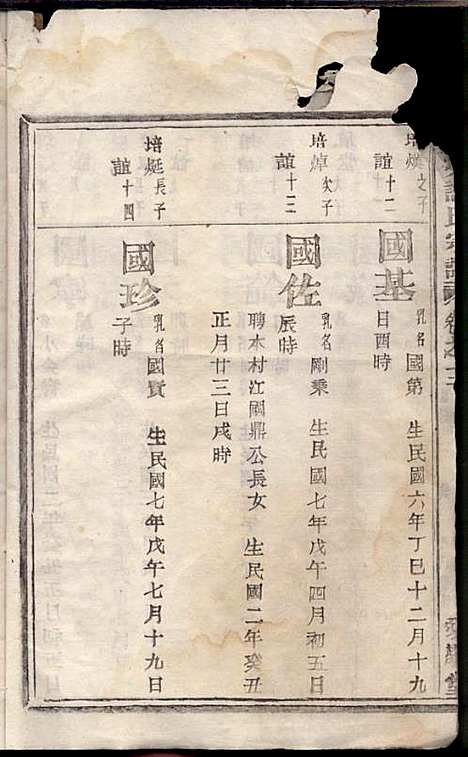 氏宗譜
卷之三
堂
培
次子
誼十二
國基
乳名國第 生民國六年丁巳十二月十九
日酉時
培焯次子
誼十三
國佐
乳名剛乘 生民國七年戊午四月初五日
辰時
聘本村江國鼎公長女 生民國二年癸丑
正月廿三日戌時
培烻長子
誼十四
國珍
乳名國賢 生民國七年戊午七月十九日
子時